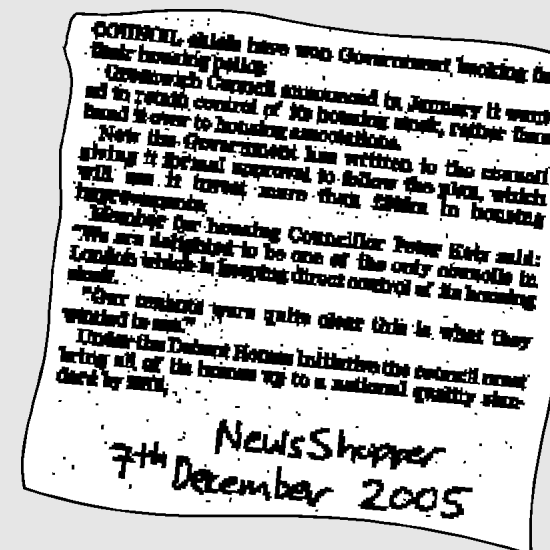 COUNCIL chiefs have won Government backing for
their housing policy.
Greenwich Council announced in January it want-
ed to retain control of its housing stock, rather than
hand it over to housing associations.
Now the Government has written to the council
giving it formal approval to follow the plan, which
will see it invest more than in housing
improvements.
Member for housing Councillor Peter said:
"We are delighted to be one of the only councils in
London which is keeping direct control of its housing
stock.
"Our tenants were quite clear this is what they
wanted to see."
Under the Decent Homes Initiative the council must
bring all of its homes up to a national quality stan-
dard by
News Shopper
7th December 2005